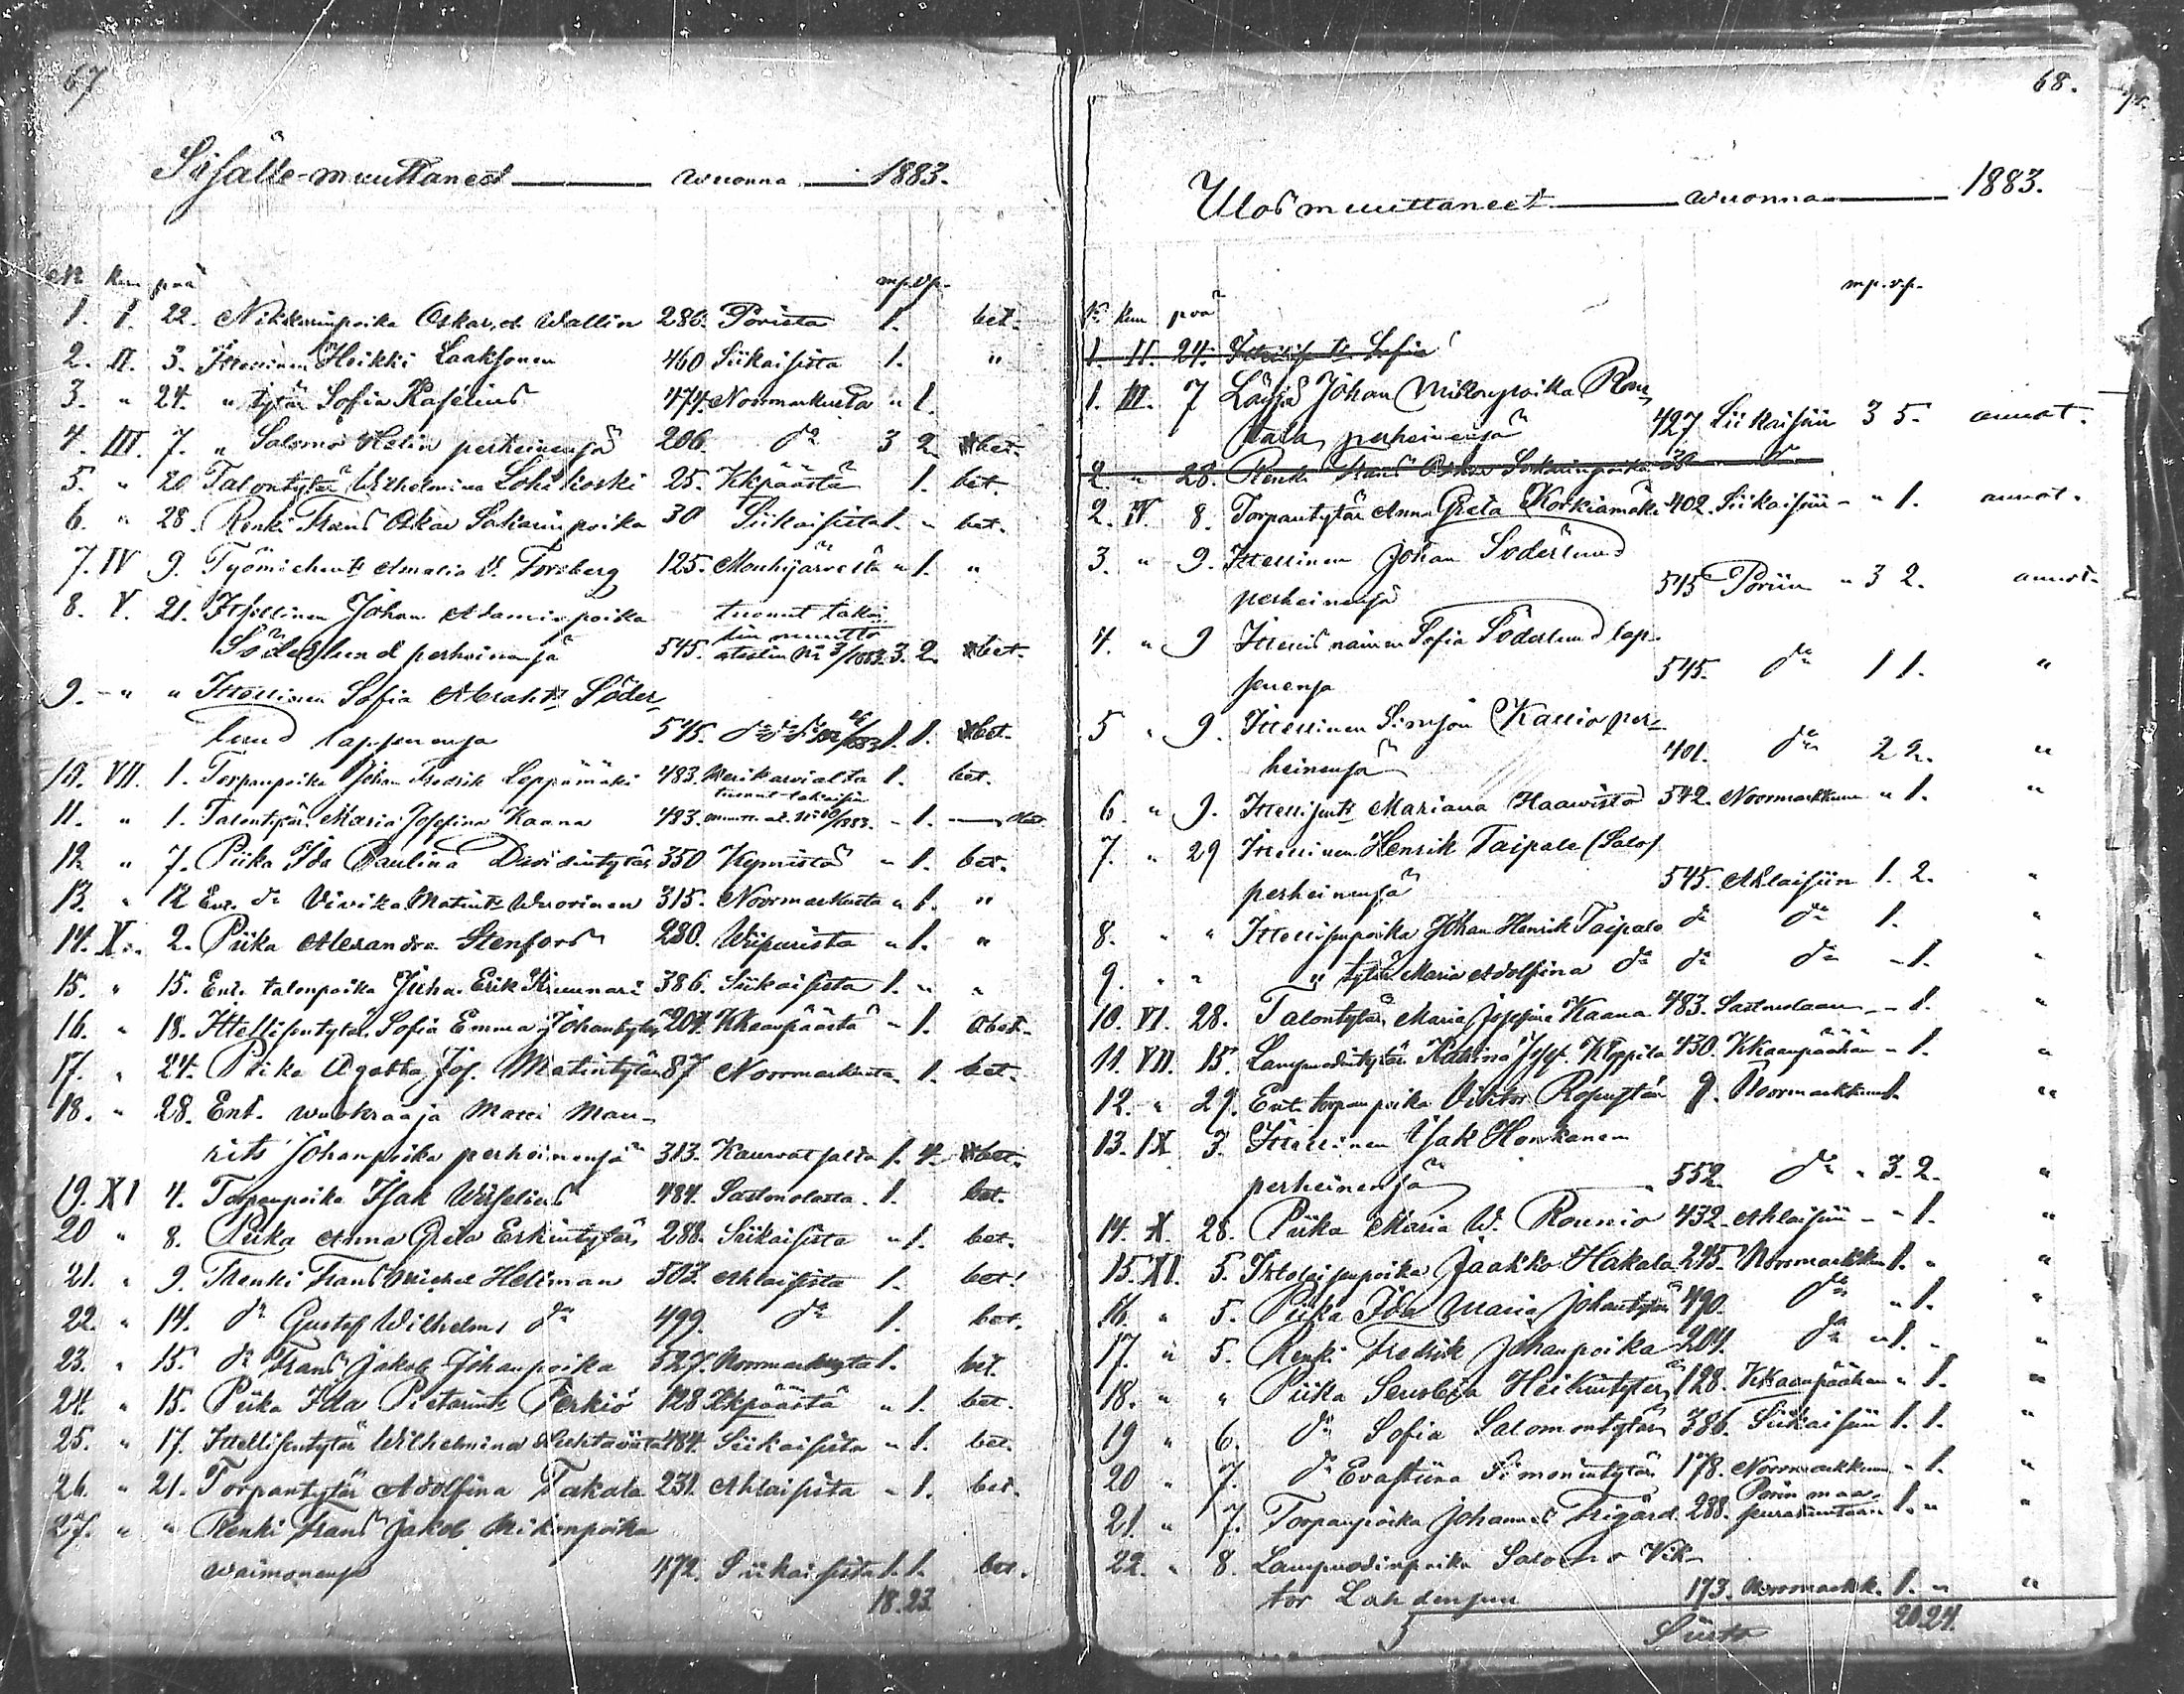 67
Sisälle-muuttaneet wuonna 1883.
No Kuu pvä mp. vp.
1. I. 22. Nikkarinpoika Oskar, Wallin 286. Porista 1. bet.
2. II. 3. Itsellinen Heikki Laaksonen 460 Siikaisista 1. "
3. " 24. " tytär Sofia Rafelius 474. Noormarkusta " 1.
4. III. 7. " Salomo Helin perheinensä 206. do 3 2. bet.
5. " 20 Talontytär Wilhelmina Lohikoski 25. Kkpäästä 1. bet.
6. " 28. Renki Frans Oskar Sakarinpoika 30 Siikaisista 1. " bet.
7. IV 9. Työmiehentr Amalia V. Forsberg 125. Mouhijärvestä " 1. "
8. V. 21. Itsellinen Johan Adaminpoika tuonut takai-
Söderlund perheinensä 545. sin muutto atestin No 3/1883. 3. 2. bet.
9. - " " Itsellinen Sofia Abrahtr Söder-
lund lapsinensa 545. do do do No 4/1883 1. 1. bet.
10. VII. 1. Torpanpoika Johan Fredrik Leppämäki 483. Merikarvialta 1. bet.
11. " 1. Talontytär Maria Josefina Kaana 483. tuonut takaisin muutt. at. No 10/1883. - 1.
12. " 7. Piika Ida Paulina Davidintytär 350 Kymistä " 1. bet.
13. " 12 Ent. do Vivika Matintr Wuorinen 315. Noormarkusta " 1. "
14. X. 2. Piika Alexandra Stenfors 280. Wiipurista " 1. "
15. " 15. Ent. talonpoika Juha Erik Kiunnari 386. Siikaisista 1. " "
16. " 18. Itsellisentytär Sofia Emma Johantytär 204. Kkaanpäästä " 1. bet.
17. " 24. Piika Agatha Jos. Matintytär 87 Noormarkusta 1. bet.
18. " 28. Ent. wuokraaja Matti Mau-
rits Johanpoika perheinensä 313. Kauwatsalta 1. 4. bet.
19. XI 4. Torpanpoika Isak Wiselius 484. Sastmolasta 1. bet.
20 " 8. Piika Anna Greta Erkintytär 288. Siikaisista " 1. bet.
21. " 9. Renki Frans Michel Hellman 503. Ahlaisista 1. bet.
22. " 14. do Gustaf Wilhelm do 499. do 1. bet.
23. " 15. do Frans Jakob Johanpoika 527. Noormarkusta 1. bet.
24. " 15. Piika Ida Pietarintr Perkiö 128 Kkpäästä " 1. bet.
25. " 17. Itsellisentytär Wilhelmina 484. Siikaisista " 1. bet.
26. " 21. Torpantytär Adolfina Takala 231. Ahlaisista " 1. bet.
27. " " Renki Frans Jakob Mikonpoika
waimonensa 472. Siikaisista 1. 1. bet.
18. 23.
68.
Ulosmuuttaneet wuonna 1883.
No Kuu pvä mp. vp.
1. II. 24. Itsellisentr Sofia
1. III. 7 Johan Mikonpoika Ran-
tala perheinensä 427 Siikaisiin 3 5. annot.
2 " 28. Renki Frans Oskar Sakarinpoika 30
2. IV 8. Torpantytär Anna Greta Korkiamäki 402. Siikaisiin - " 1. annot.
3. " 9. Itsellinen Johan Söderlund
perheinensä 545 Poriin " 3 2. annot.
4. " 9 Itsellisnainen Sofia Söderlund lap-
sinensa 545. do 1 1. "
5 " 9. Itsellinen Simson Kallio per-
heinensä 401. do 2 2. "
6 " 9. Itsellisentr Mariana Haawisto 542. Noormarkkuun " 1. "
7. " 29 Itsellinen Henrik Taipale (Salo)
perheinensä 545. Ahlaisiin 1. 2. "
8. " " Itsellisenpoika Johan Henrik Taipale do do 1. "
9. " " " tytär Maria Adolfina do do do - 1. "
10. VI. 28. Talontytär Maria Josefina Kaana 483. Sastmolaan - - 1. "
11. VII. 15. Lampuodintytär Karina Josef. Kloppila 430. Kkaanpäähän - 1. "
12. " 29. Ent. torpanpoika Viktor 9. Noormarkkuun 1. "
13. IX 3. Itsellinen Isak Honkanen
perheinensä 552. do " 3. 2. "
14. X. 28. Piika Maria W. Rounio 432. Ahlaisiin - " 1. "
15. XI. 5. Itsellisenpoika Jaakko Hakala 245. Noormarkkun 1. " "
16. " 5. Piika Ida Maria Johantytär 490. do " 1. "
17. " 5. Renki Fredrik Johanpoika 204. do " 1. - "
18. " " Piika Serafia Heikintytär 128. Kkaanpäähän " 1. "
19 " 6. do Sofia Salomontytär 386. Siikaisiin 1. 1. "
20 " 7. do Evastiina Simonintytär 178. Noormarkkuun " 1. "
21. " 7. Torpanpoika Johannes Frigård 288. Porin maa- seurakuntaan 1. " "
22. " 8. Lampuodinpoika Salomo Vik-
tor Lahdensuu 173. Noormarkk. 1. " "
Siirto 20. 24.